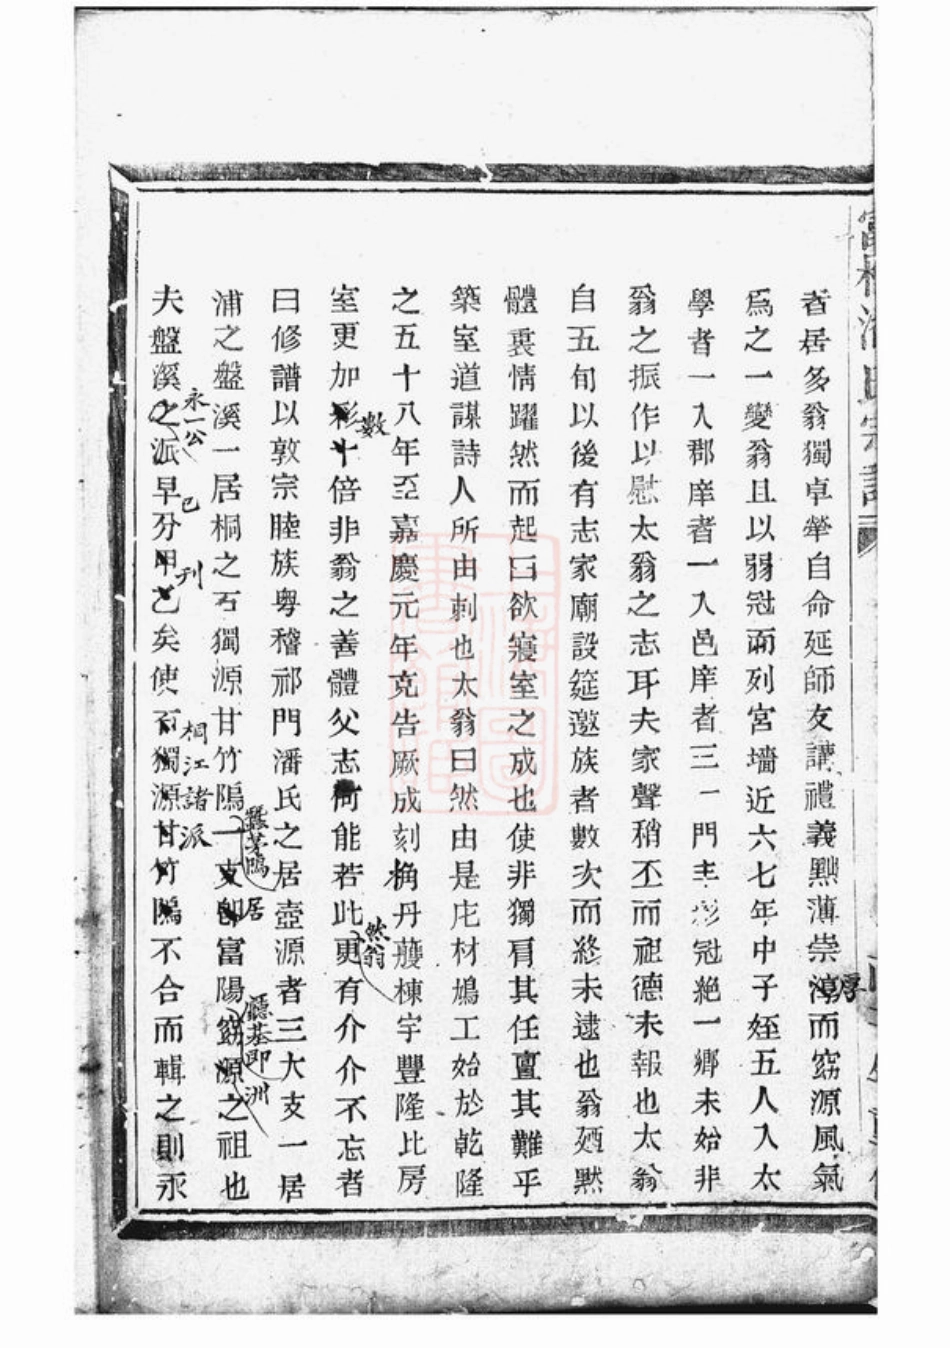 者居多翁獨卓犖自命延師友講禮義黜薄崇淳而窈源風氣
厚
爲之一變翁且以弱冠而列宮墻近六七年中子姪五人入太
學者一入郡庠者一入邑庠者三一門丰彩冠絶一鄉未始非
翁之振作以慰太翁之志耳夫家聲稍丕而祖德未報也太翁
自五旬以後有志家廟設筵邀族者數次而終未逮也翁廼黙
體裏情躍然而起曰欲寢室之成也使非獨肩其任亶其難乎
築室道謀詩人所由刺也太翁曰然由是庀材鳩工始於乾隆
之五十八年至嘉慶元年克告厥成刻桷丹雘棟宇豐隆比房
室更加彩十倍非翁之善體父志何能若此更有介介不忘者
數
然翁
曰修譜以敦宗睦族粤稽祁門潘氏之居壺源者三大支一居
浦之盤溪一居桐之石獨源甘竹隖一支卽富陽窈源之祖也
居
夫盤溪之派早分甲乙矣使石獨源甘竹隖不合而輯之則永
永一公
已
刊
桐江諸派